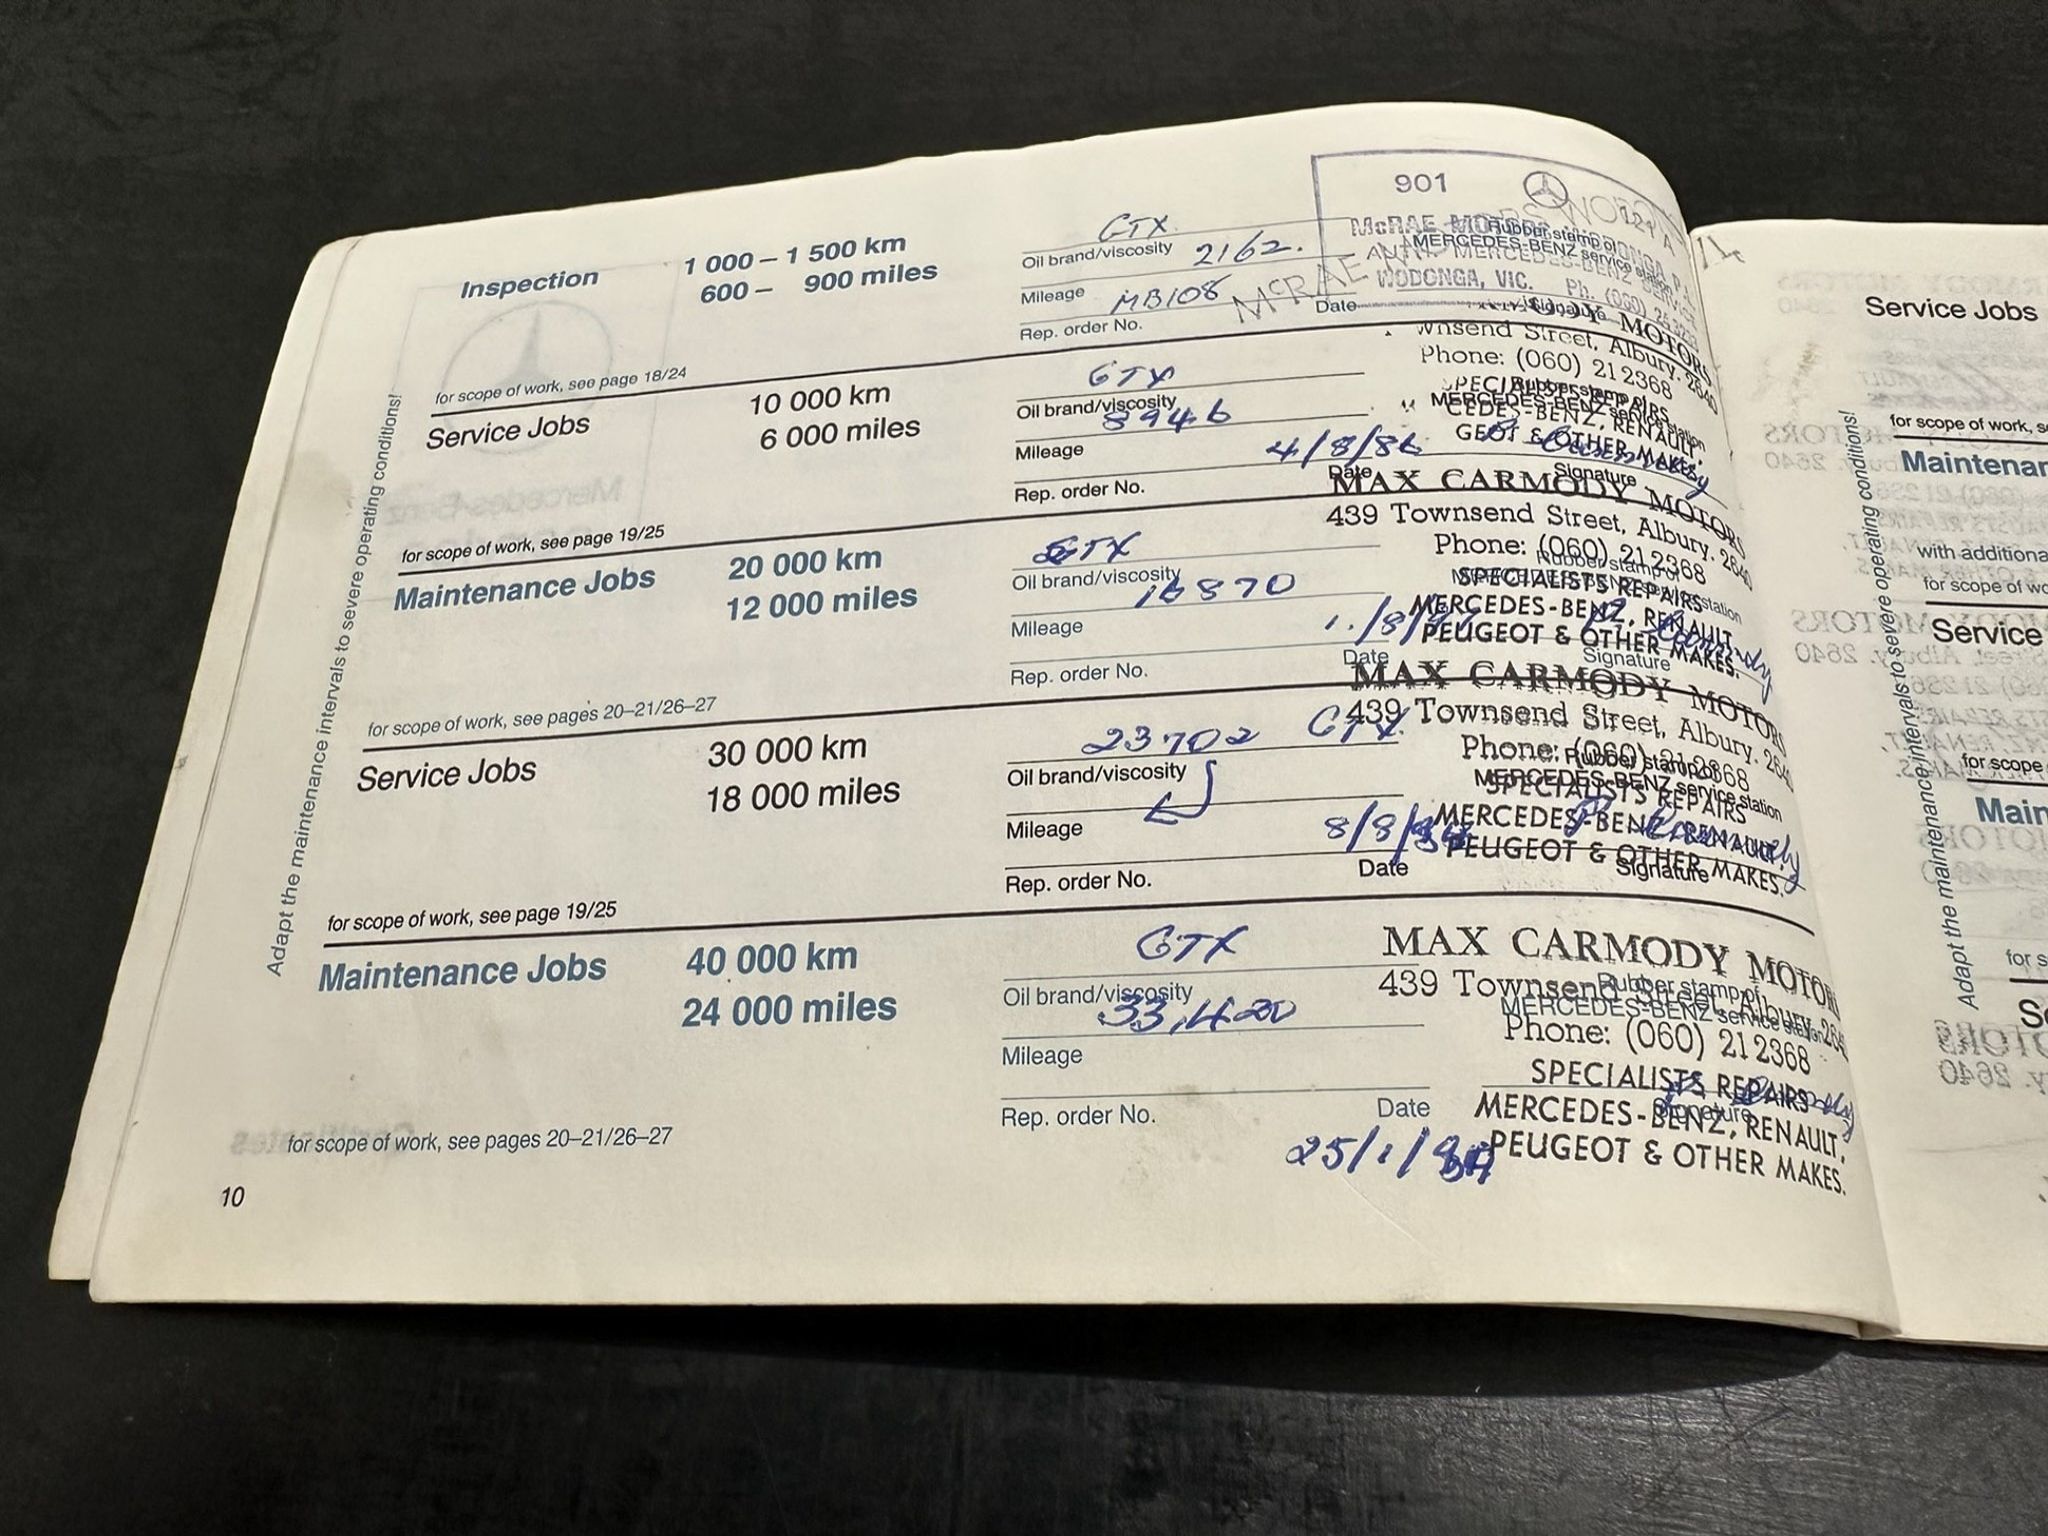 Adapt the maintenance intervals to severe operating conditions!
Inspection
1 000 – 1 500 km
600 – 900 miles
for scope of work, see page 18/24
GTX
Oil brand/viscosity
2162.
Mileage
MB108
Rep. order No.
Date
Signature
901
McRAE MOTORS
MERCEDES-BENZ
WODONGA, VIC. Ph. (060)
Rubber stamp of
MERCEDES-BENZ service station
McRAE
Service Jobs
10 000 km
6 000 miles
for scope of work, see page 19/25
GTX
Oil brand/viscosity
8946
Mileage
Rep. order No.
4/8/86
Date
Signature
MOTORS
wnsend Street, Albury. 2640
Phone: (060) 21 2368
SPECI REPAIRS
CEDES-BENZ, RENAULT,
GEOT & OTHER MAKES.
Rubber stamp of
MERCEDES-BENZ service station
Maintenance Jobs
20 000 km
12 000 miles
for scope of work, see pages 20–21/26–27
GTX
Oil brand/viscosity
16870
Mileage
Rep. order No.
1./8/
Date
Signature
MAX CARMODY MOTORS
439 Townsend Street, Albury. 2640
Phone: (060) 21 2368
SPECIALISTS REPAIRS
MERCEDES-BENZ, RENAULT,
PEUGEOT & OTHER MAKES.
Rubber stamp of
station
Service Jobs
30 000 km
18 000 miles
for scope of work, see page 19/25
23702 GTX
Oil brand/viscosity
Mileage
Rep. order No.
8/8/
Date
Signature
MAX CARMODY MOTORS
439 Townsend Street, Albury. 2640
Phone: (060) 21 2368
SPECIALISTS REPAIRS
MERCEDES-BENZ, RENAULT,
PEUGEOT & OTHER MAKES.
Rubber stamp of
MERCEDES-BENZ service station
Maintenance Jobs
40 000 km
24 000 miles
for scope of work, see pages 20–21/26–27
GTX
Oil brand/viscosity
33,420
Mileage
Rep. order No.
Date
25/1/
Signature
MAX CARMODY MOTORS
439 Townsend Street, Albury. 2640
Phone: (060) 21 2368
SPECIALISTS REPAIRS
MERCEDES-BENZ, RENAULT,
PEUGEOT & OTHER MAKES.
Rubber stamp of
MERCEDES-BENZ service station
10
Adapt the maintenance intervals to severe operating conditions!
Service Jobs
for scope of work, s
Maintenan
with additiona
for scope of wo
Service
for scope
Main
for s
Se